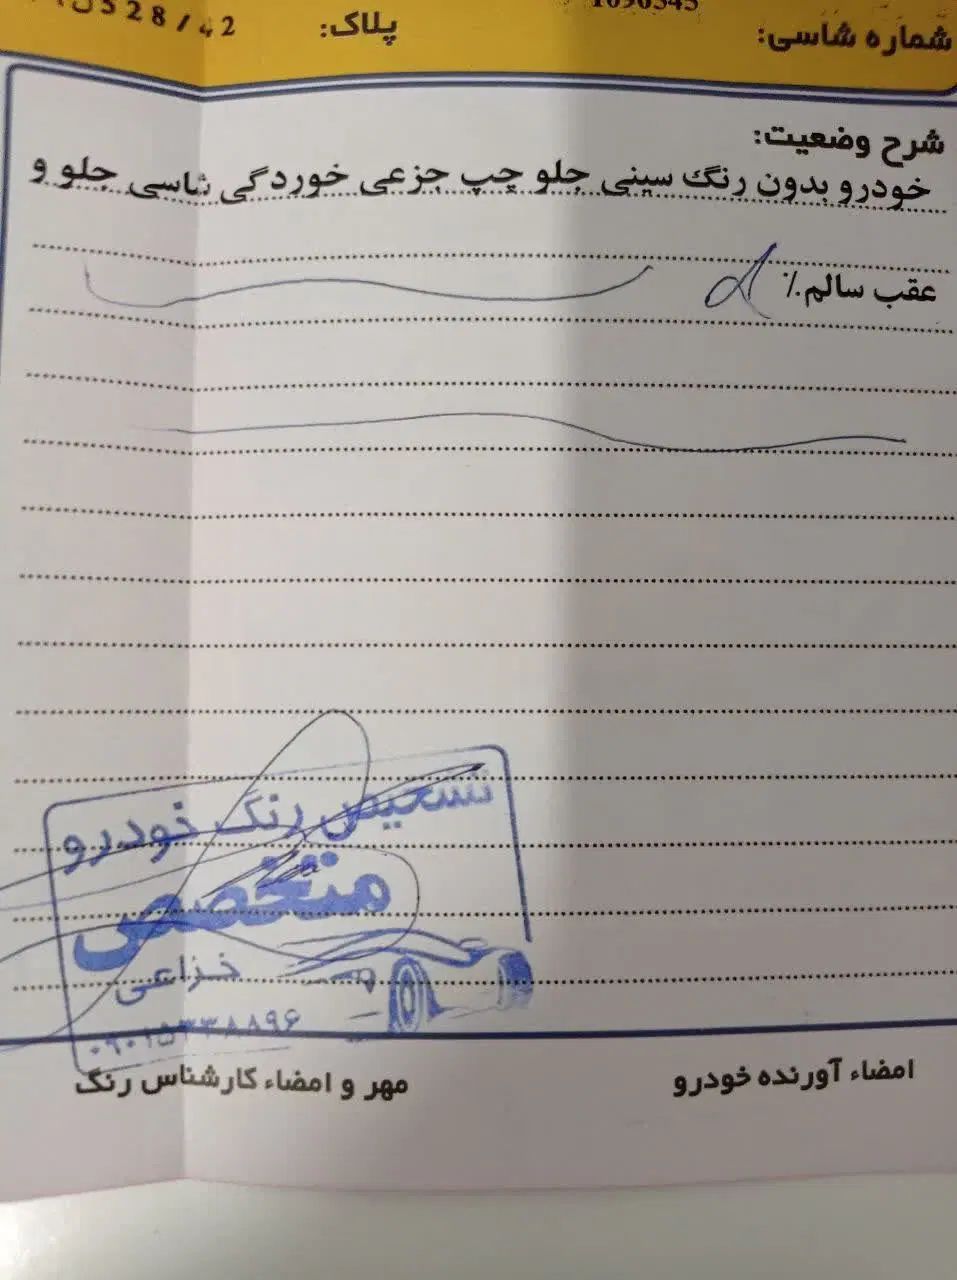 شماره شاسی: 1090345
پلاک: 528/42
شرح وضعیت:
خودرو بدون رنگ سینی جلو چپ جزعی خوردگی شاسی جلو و
عقب سالم٪
تشخیص رنگ خودرو
متخصص
خزاعی
۰۹۰۱۵۳۳۸۸۹۶
امضاء آورنده خودرو
مهر و امضاء کارشناس رنگ